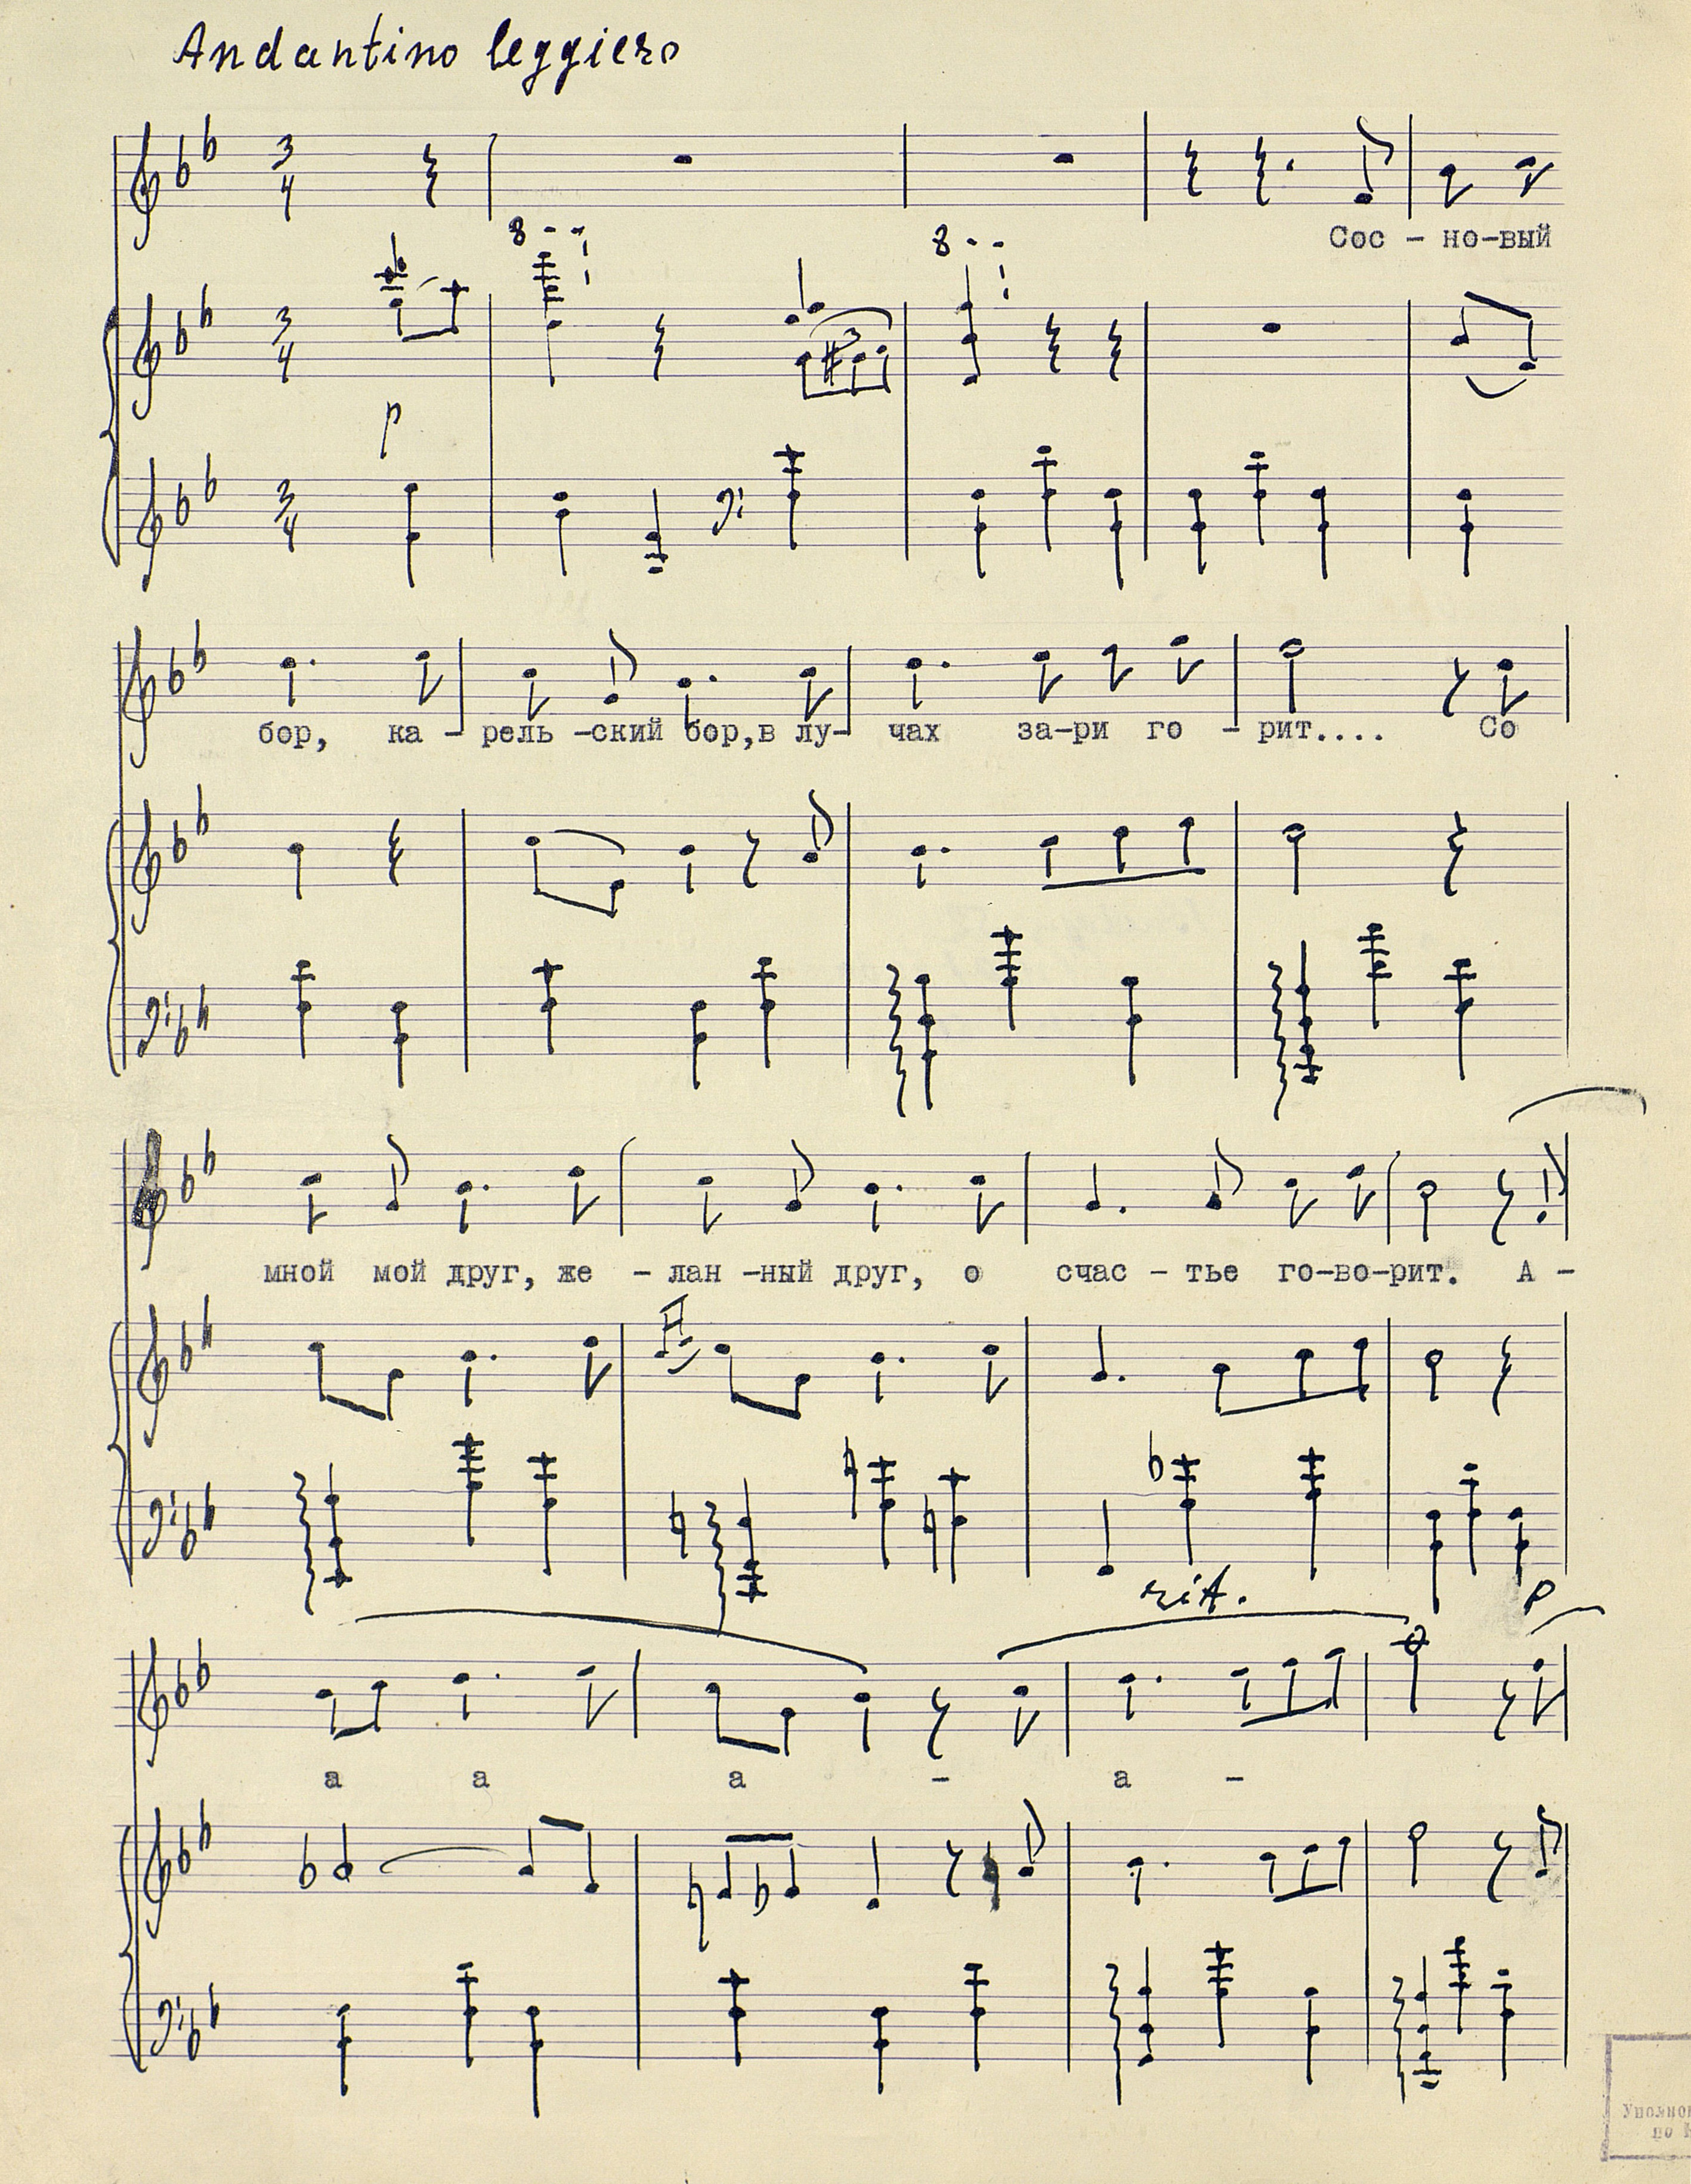 Andantino leggiero
3 4
Сос - но-вый
8 - -
8 - -
3 4
3
p
3 4
бор, ка - рель -ский бор,в лу- чах за-ри го - рит.... Со
мной мой друг, же - лан -ный друг, о счас - тье го-во-рит. А -
rit.
p
а а а - а -
по